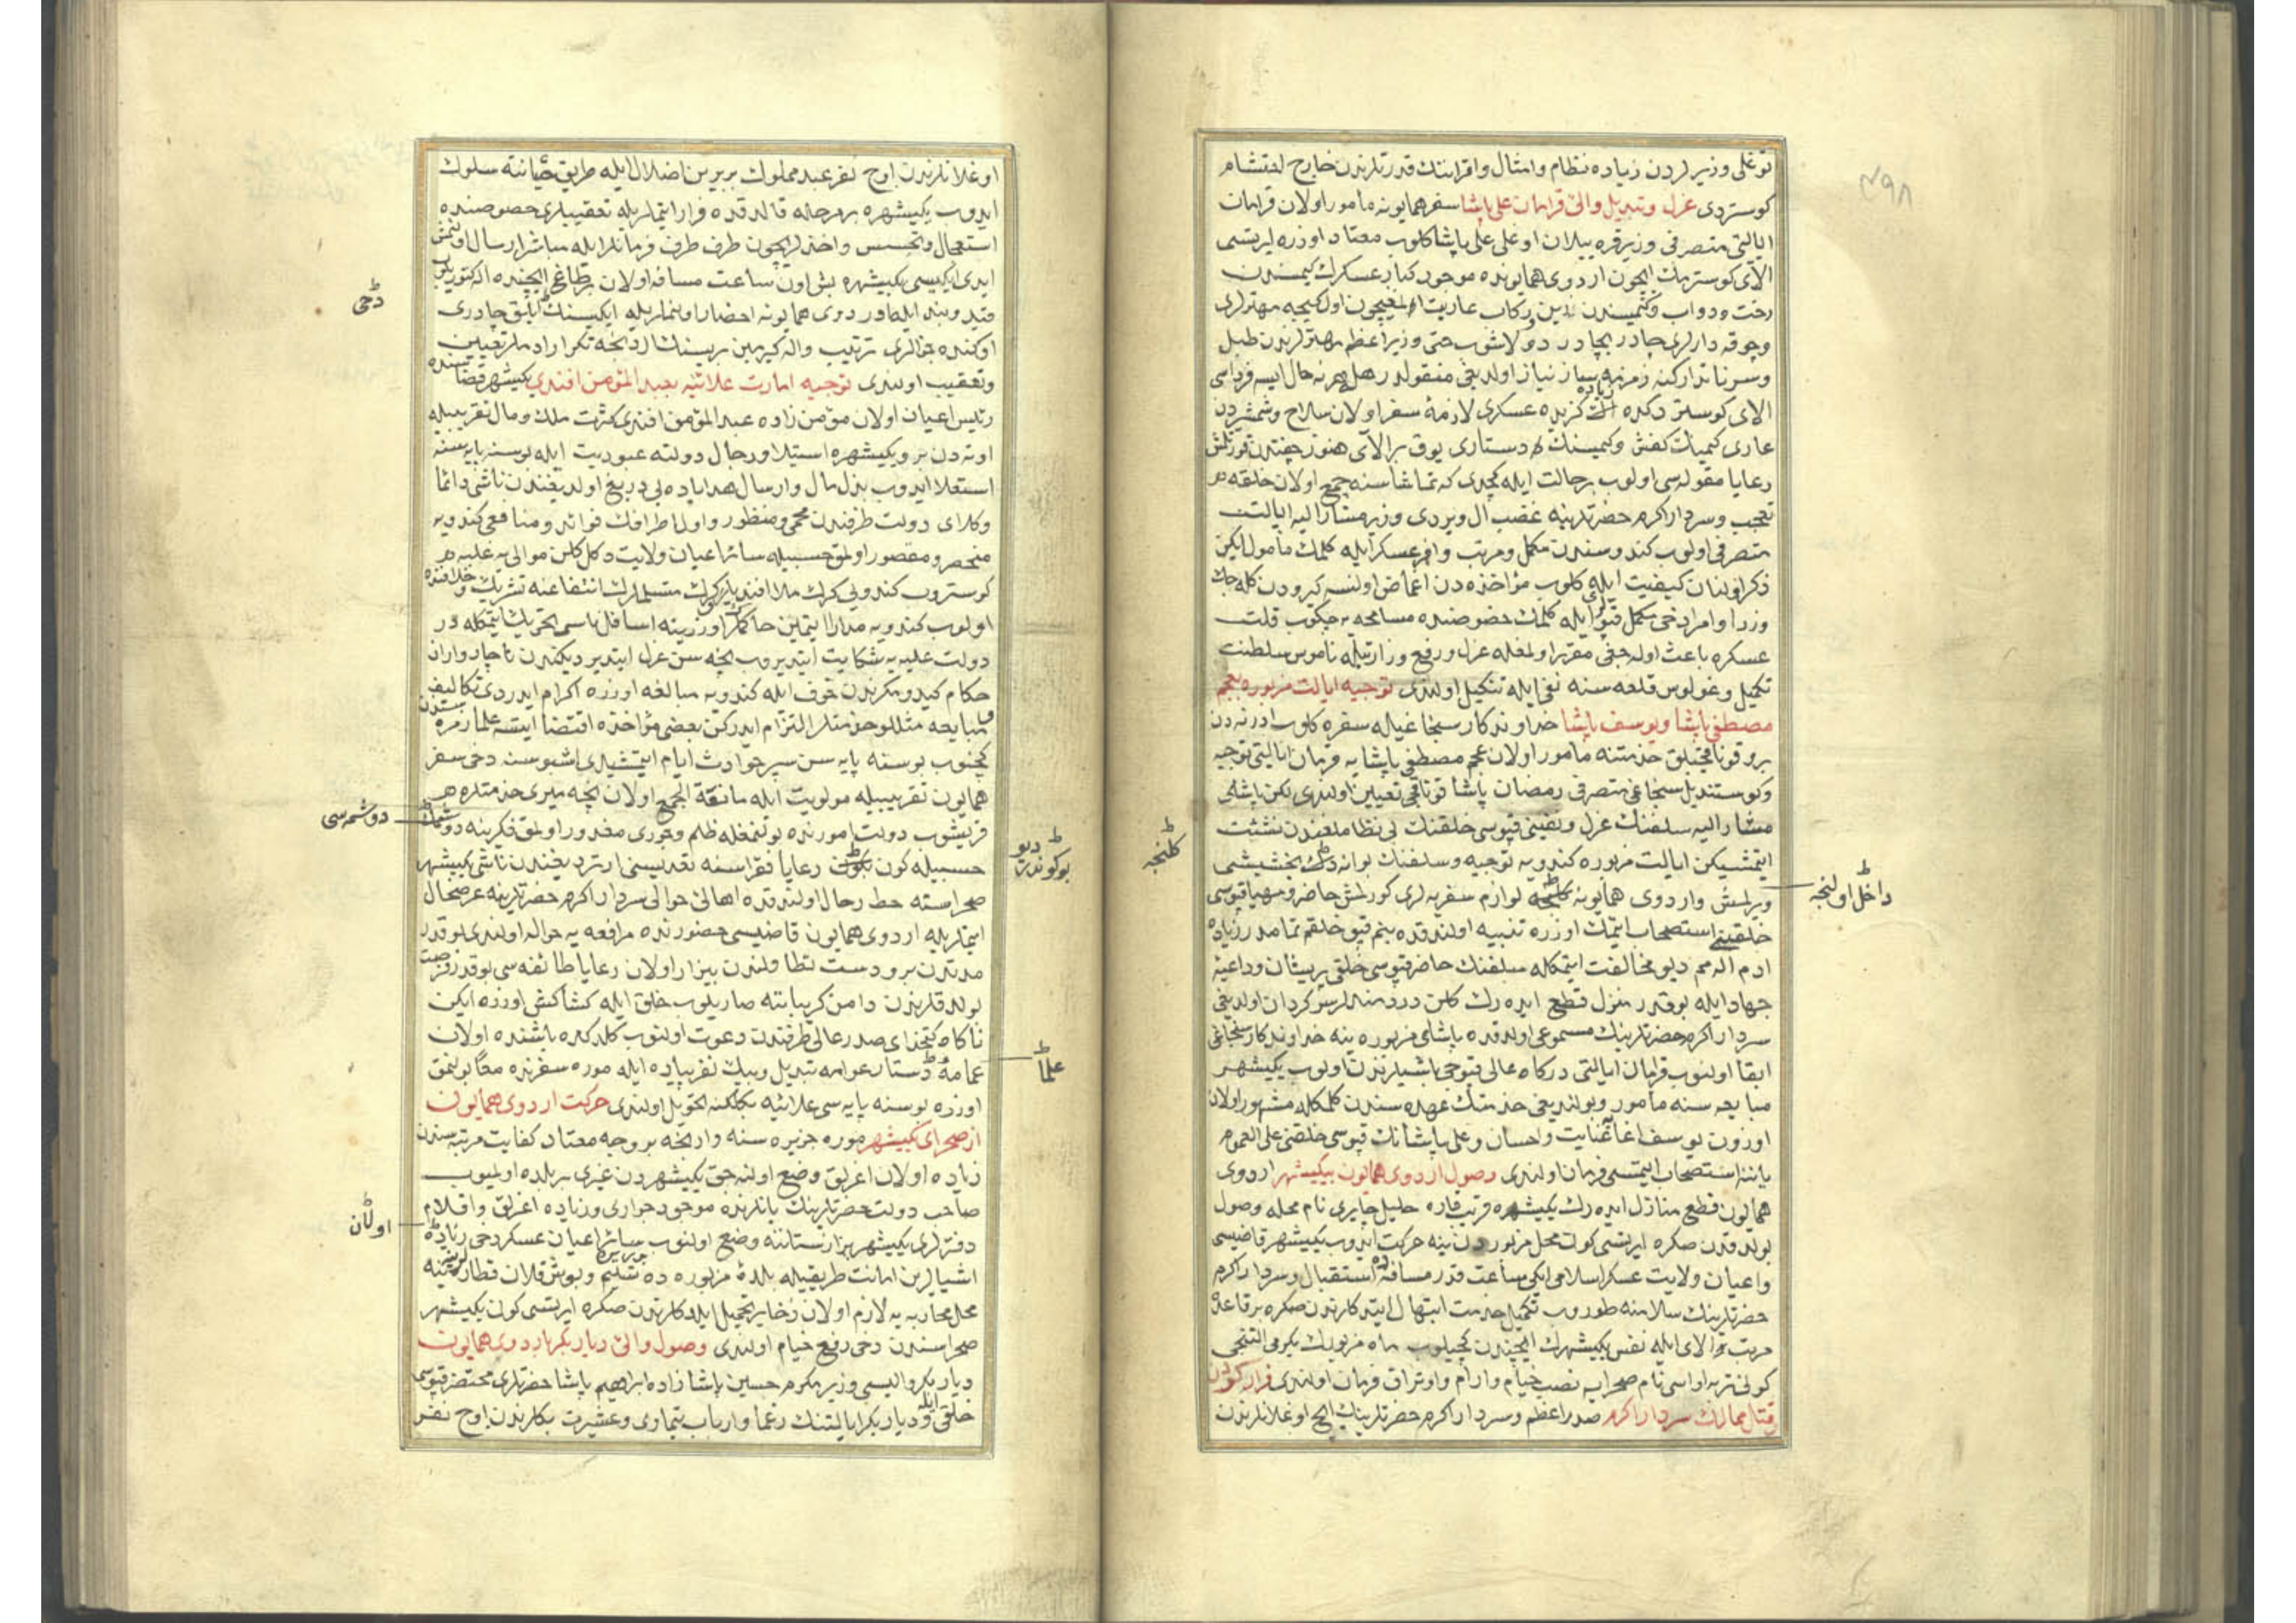 ٤٩٨
توغلی وزیرلردن زیاده نظام وامثال واقرانك قدرتلرندن خارج احتشام
كوستردی عزل وتبدیل والئ قرامان علی پاشا سفر همایونه مأمور اولان قرامان
ایالتی متصرفی وزیر قره ییلان اوغلی علی پاشا كلوب معتاد اوزره ایرتسی
الای كوسترمك ایچون اردوی همایونده موجود كبار عسكرك كیمسندن
رخت ودواب وكیمسندن زین وركاب عاریت المغیچون اول كیجه مهترلری
وچوقه دارلری چادر بچادر دولاشوب حتی وزیر اعظم مهترلرندن طبل
وسرنا تداركنه زمزمه ساز نیاز اولدیغی منقولدر هله هر نه حال ایسه فرداسی
الای كوستردكده اك زیاده كزیده عسكری لازمۀ سفر اولان سلاح وشمشیردن
عاری كیمینك كفش وكیمسنك دستاری یوق بر الای هنوز چفتدن قورتلمش
رعایا مقوله سی اولوب برحالت ایله كچدی كه تماشاسنه جمع اولان خلقه هر
تعجب وسردار اكرم حضرتلرینه غضب ال ویردی وزیر مشار الیه ایالت
متصرفی اولوب كندوسندن مكمل ومرتب وافر عسكر ایله كلمك مأمول ایكن
ذكر اولنان كیفیت ایله كلوب مؤاخذه دن اغماض اولنسه كیرودن كله جك
وزرا وامرا دخی مكمل قپولری ایله كلمك خصوصنده مسامحه یه چكوب قلت
عسكره باعث اوله جغی مقرر اولمغله عزل ورفع وزارتیله ناموس سلطنت
تكمیل وغولوس قلعه سنه نفی ایله تنكیل اولندی توجیه ایالت مزبوره بعجم
مصطفی پاشا ویوسف پاشا خداوندكار سنجاغیله سفره كلوب ادرنه دن
برو قوناقجیلق خدمتنه مأمور اولان عجم مصطفی پاشایه قرمان ایالتی توجیه
وكوستندیل سنجاغی متصرفی رمضان پاشا قوناقجی تعیین اولندی لكن پاشای
مشار الیه سلفنك عزل ونفینی قپوسی خلقنك بی نظاملغندن نشئت
ایتمشیكن ایالت مزبوره كندویه توجیه وسلفنك بوانه دك بخشیشی
ویرلمش واردوی همایونه كلنجه لوازم سفریه لری كورلمش حاضر ومهیا قپوسی
داخل اولنجه
كلنجه
خلقینی استصحاب ایتمك اوزره تنبیه اولندقده بنم قپو خلقم تمامدر زیاده
ادم المم دیو مخالفت ایتمكله سلفنك حاضر قپوسی خلقی پریشان وداعیۀ
جهاد ایله بوقدر منزل قطع ایده رك كلن دردمندلر سركردان اولدیغی
سردار اكرم حضرتلرینك مسموعی اولدقده پاشای مزبوره ینه خداوندكار سنجاغی
ابقا اولنوب قرامان ایالتی دركاه عالی قپوجی باشیلرندن اولوب یكیشهر
مبایعه سنه مأمور وبولندیغی خدمتك عهده سندن كلمكله مشهور اولان
اوزون یوسف اغایه عنایت واحسان وعلی پاشانك قپوسی خلقنی علی العموم
یاننه استصحاب ایتمسی فرمان اولندی وصول اردوی همایون بیكیشهر اردوی
همایون قطع منازل ایده رك یكیشهره قریب قاره خلیل چایری نام محله وصول
بولدقدن صكره ایرتسی كون محل مزبوردن ینه حركت ایدوب یكیشهر قاضیسی
واعیان ولایت عسكر اسلامی ایكی ساعت قدر مسافه ده استقبال وسردار اكرم
حضرتلرینك سلامنه طوروب تكمیل خدمت ابتهال ایتدكلرندن صكره برقاعدۀ
مرتب الای ایله نفس یكیشهرك ایچندن كچیلوب ماه مزبورك یكرمی التنجی
كونی تربه اواسی نام صحرایه نصب خیام وارام واوتراق فرمان اولندی فرار كردن
وقتل ممالیك سردار اكرم صدر اعظم وسردار اكرم حضرتلرینك ایچ اوغلانلرندن
اوغلانلرندن اوچ نفر عبد مملوك بربرین اضلال ایله طریق خیانته سلوك
ایدوب یكیشهره برمرحله قالدقده فرار ایتملریله تعقیبلری خصوصنده
استعجال وتجسس واخذلریچون طرف طرف فرمانلر ایله مباشر ارسال اولنمش
ایدی ایكیسی یكیشهره بش اون ساعت مسافه اولان برطاغ ایچنده اله كتوریلوب
دخی
قید وبند ایله اوردوی همایونه احضار اولنملریله ایكیسنك ایلق چادری
اوكنده جزالری ترتیب واله كیرمین بریسنك اردنجه تكرار ادملر تعیین
وتعقیب اولندی توجیه امارت علائیه بعبد المؤمن افندی یكیشهر قضاسنده
رئیس اعیان اولان مؤمن زاده عبد المؤمن افندی كثرت ملك ومال تقریبیله
اوته دن برو یكیشهره استیلا ورجال دولته عبودیت ایله بوسنه پایه سنه
استعلا ایدوب بذل مال وارسال هدایاده بی دریغ اولدیغندن ناشی دائما
وكلای دولت طرفندن محمی ومنظور واول اطرافك فوائد ومنافعی كندویه
منحصر ومقصور اولمق حسبیله سائر اعیان ولایت دكل كلن موالی یه غلبه هر
كوستروب كندولی كرك ملا افندیلر كرك متسلملرك انتفاعنه تشریك وخلافنده
اولوب كندویه مدارا ایتمین حاكملر اوزرینه اسافل ناسی تحریك ایتمكله در
دولت علیه یه شكایت ایتدیروب نیجه سن عزل ایتدیردیكندن ناچار واران
حكام كیدومكزندن خوف ایله كندویه مبالغه اوزره اكرام ایدردی تكالیف
ومبایعه مثللو خدمتلر التزام ایدركن بعضی مؤاخذه اقتضا ایتسه علما زمره سندن
كچنوب بوسنه پایه سن سپر حوادث ایام ایتمشیدی اشبو سنه دخی سفر
همایون تقریبیله مولویت ایله مانعة الجمع اولان نیجه میری خدمتلره هر
قریشوب دولت امورنده بولنمغله ظلم وجوری مغدور اولمق فكرینه دوشمك
دوشمه سی
حسبیله كون بكون رعایا فقراسنه تعدیسنی ارتردیغندن ناشی یكیشهر
بوكوندر دیو
صحراسنه حط رحال اولندقده اهالئ حوالی سردار اكرم حضرتلرینه عرضحال
ایتملریله اردوی همایون قاضیسی حضورنده مرافعه یه حواله اولندی بوقدر
مدتدن برو دست تطاولندن بیزار اولان رعایا طائفه سی بوقدر فرصت
بولدقلرندن دامن كریباننه صاریلوب خلق ایله كشاكش اوزره ایكن
ناكاه كتخدای صدر عالی طرفندن دعوت اولنوب كلدكده باشنده اولان
عمامۀ دستار عوامه تبدیل وبیك نفر پیاده ایله موره سفرنده معا بولنمق
علما
اوزره بوسنه پایه سی علائیه بكلكنه تحویل اولندی حركت اردوی همایون
از صحرای یكیشهر موره جزیره سنه وارنجه بروجه معتاد كفایت مرتبه سندن
زیاده اولان اغرلق وضع اولنه جق یكیشهردن غیری بربلده اولمیوب
صاحب دولت حضرتلرینك یانلرنده موجود جواری وزیاده اغرلق واقلام
دفترلری یكیشهر بزازستاننه وضع اولنوب سائر اعیان عسكر دخی زیاده
اولان
اشیالرین امانت طریقیله بلدۀ مزبوره ده تسلیم وبوش قلان قطارلرینه
محل محاربه یه لازم اولان ذخایر تحمیل ایلدكلرندن صكره ایرتسی كون یكیشهر
صحراسندن دخی رفع خیام اولندی وصول والئ دیاربكر باردوی همایون
دیاربكر والیسی وزیر مكرم حسین پاشا زاده ابراهیم پاشا حضرتلری محتضر قپوسی
خلقی ایله ودیاربكر ایالتنك زعما وارباب تیماری وعشیرت بكلرندن اوچ نفر